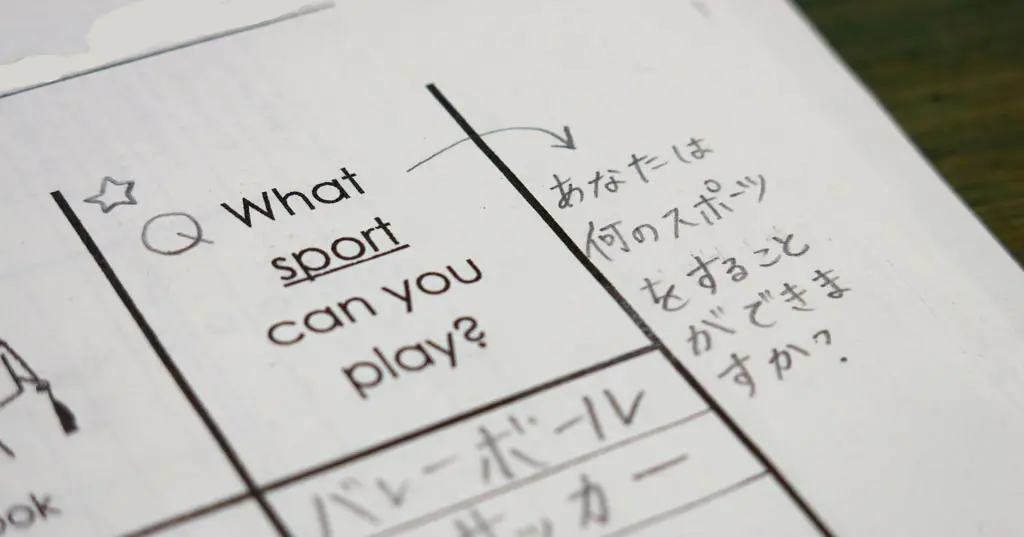 Q What
sport
can you
play?
あなたは
何のスポーツ
をすること
ができま
すか?
バレーボール
サッカー